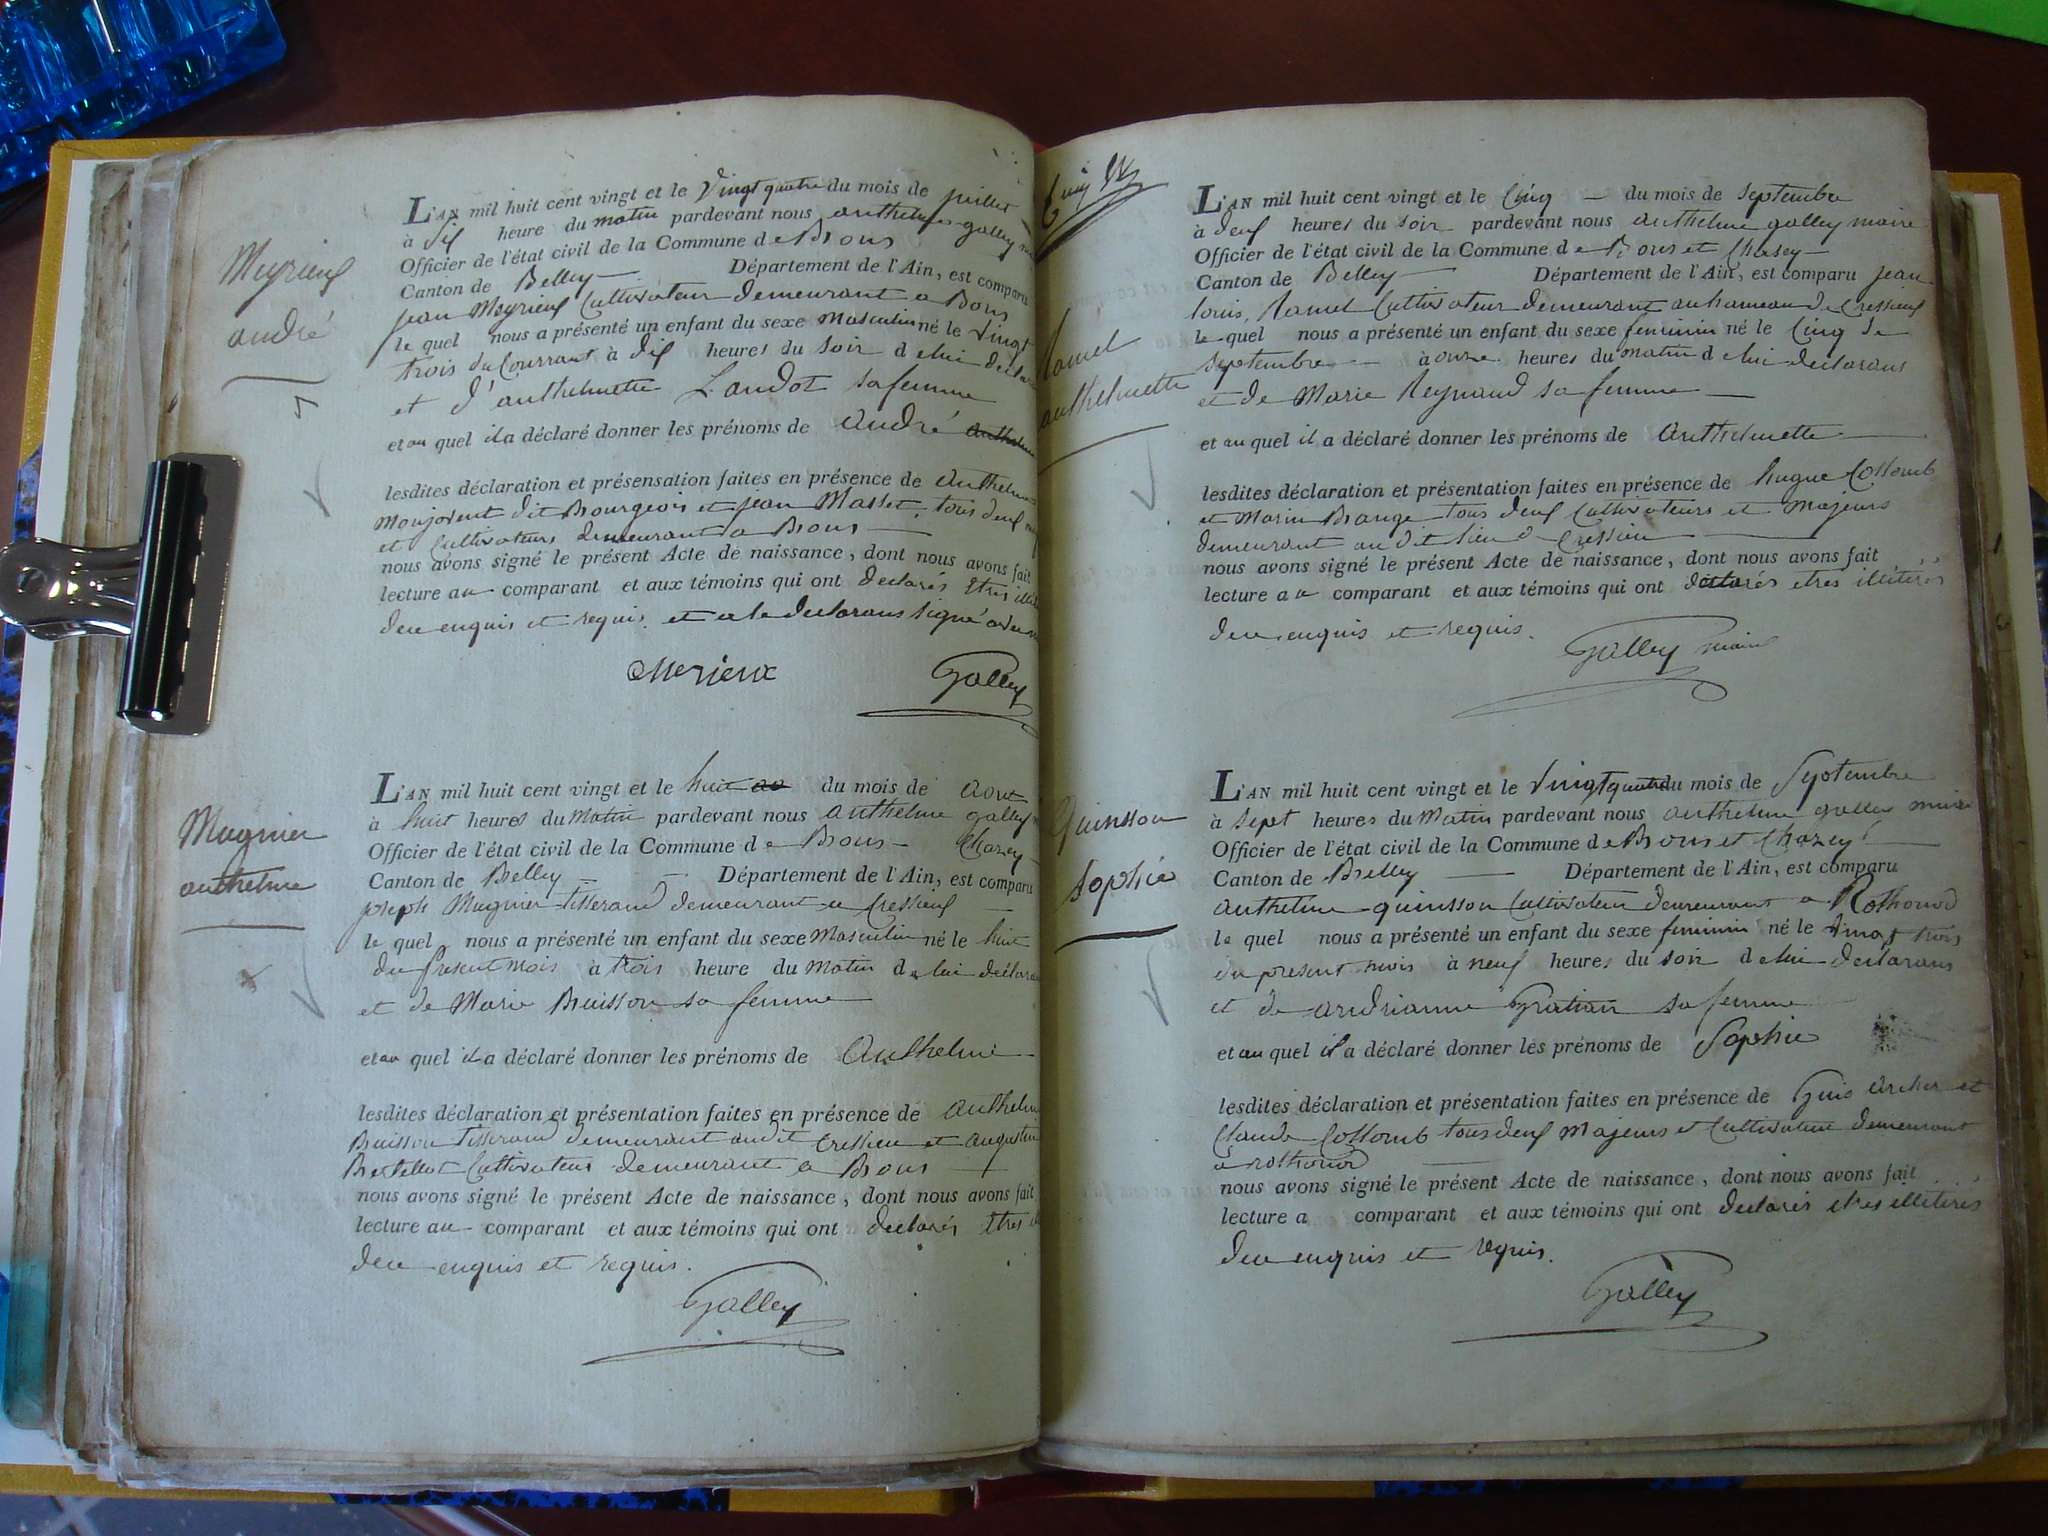 Meyrieux
andré
L'AN mil huit cent vingt et le Vingt quatre du mois de juillet
à dix heure du matin pardevant nous anthelme galley
Officier de l'état civil de la Commune de Brous
Canton de Belley Département de l'Ain, est comparu
jean Meyrieux Cultivateur demeurant a Bons
le quel nous a présenté un enfant du sexe Masculin né le Vingt
trois du Courrant à dix heures du soir de lui
et d'anthelmette Landot sa femme
et au quel il a déclaré donner les prénoms de André
lesdites déclaration et présensation faites en présence de
Monjovent dit Bourgeois et jean Masset tous deux
et Cultivateurs demeurant a Brous
nous avons signé le présent Acte de naissance, dont nous avons fait
lecture au comparant et aux témoins qui ont declarés Etres
deu enquis et requis. et a le declarans signé
Merieux Galley
Mugnier
anthelme
L'AN mil huit cent vingt et le huit du mois de aout
à huit heures du Matin pardevant nous anthelme galley
Officier de l'état civil de la Commune de Brous Chazey
Canton de Belley Département de l'Ain, est comparu
joseph Mugnier tisserand demeurant a Cressieux
le quel nous a présenté un enfant du sexe Masculin né le huit
du Present mois à trois heure du Matin de lui
et de Marie Buisson sa femme
et au quel il a déclaré donner les prénoms de Anthelme
lesdites déclaration et présentation faites en présence de
Buisson tisserand demeurant audit Cressieu et augustin
Bertellot Cultivateur demeurant a Brous
nous avons signé le présent Acte de naissance, dont nous avons fait
lecture au comparant et aux témoins qui ont declarés Etres
deu enquis et requis.
Galley
Ramel
anthelmette
L'AN mil huit cent vingt et le Cinq du mois de septembre
à deux heures du soir pardevant nous anthelme galley maire
Officier de l'état civil de la Commune de Brous et Chasey
Canton de Belley Département de l'Ain, est comparu jean
louis, Ramel Cultivateur demeurant au hameau de Cressieux
le quel nous a présenté un enfant du sexe feminin né le Cinq de
septembre à onze heures du matin de lui declarans
et de Marie Reynaud sa femme
et au quel il a déclaré donner les prénoms de Anthelmette
lesdites déclaration et présentation faites en présence de hugue Collomb
et Marin Brange tous deux Cultivateurs et Majeurs
demeurant au dit lieu de Cressieu
nous avons signé le présent Acte de naissance, dont nous avons fait
lecture au comparant et aux témoins qui ont declarés etres illitérés
deu enquis et requis.
Galley maire
Quinsson
Sophie
L'AN mil huit cent vingt et le Vingt quatre du mois de Septembre
à sept heures du Matin pardevant nous anthelme galley maire
Officier de l'état civil de la Commune de Brous et Chazey
Canton de Belley Département de l'Ain, est comparu
Anthelme quinsson Cultivateur demeurant a Rothonod
le quel nous a présenté un enfant du sexe feminin né le vingt trois
du present mois à neuf heures du soir de lui declarans
et de andrianne Gratian sa femme
et au quel il a déclaré donner les prénoms de Sophie
lesdites déclaration et présentation faites en présence de Guis archer et
Claude Collomb tous deux Majeurs et Cultivateur demeurant
a rothonod
nous avons signé le présent Acte de naissance, dont nous avons fait
lecture a comparant et aux témoins qui ont declarés etres illitérés
deu enquis et requis.
Galley